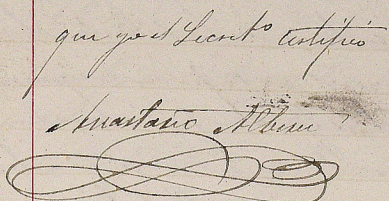 que yo el Secret.º certifico
Anastasio Albisu